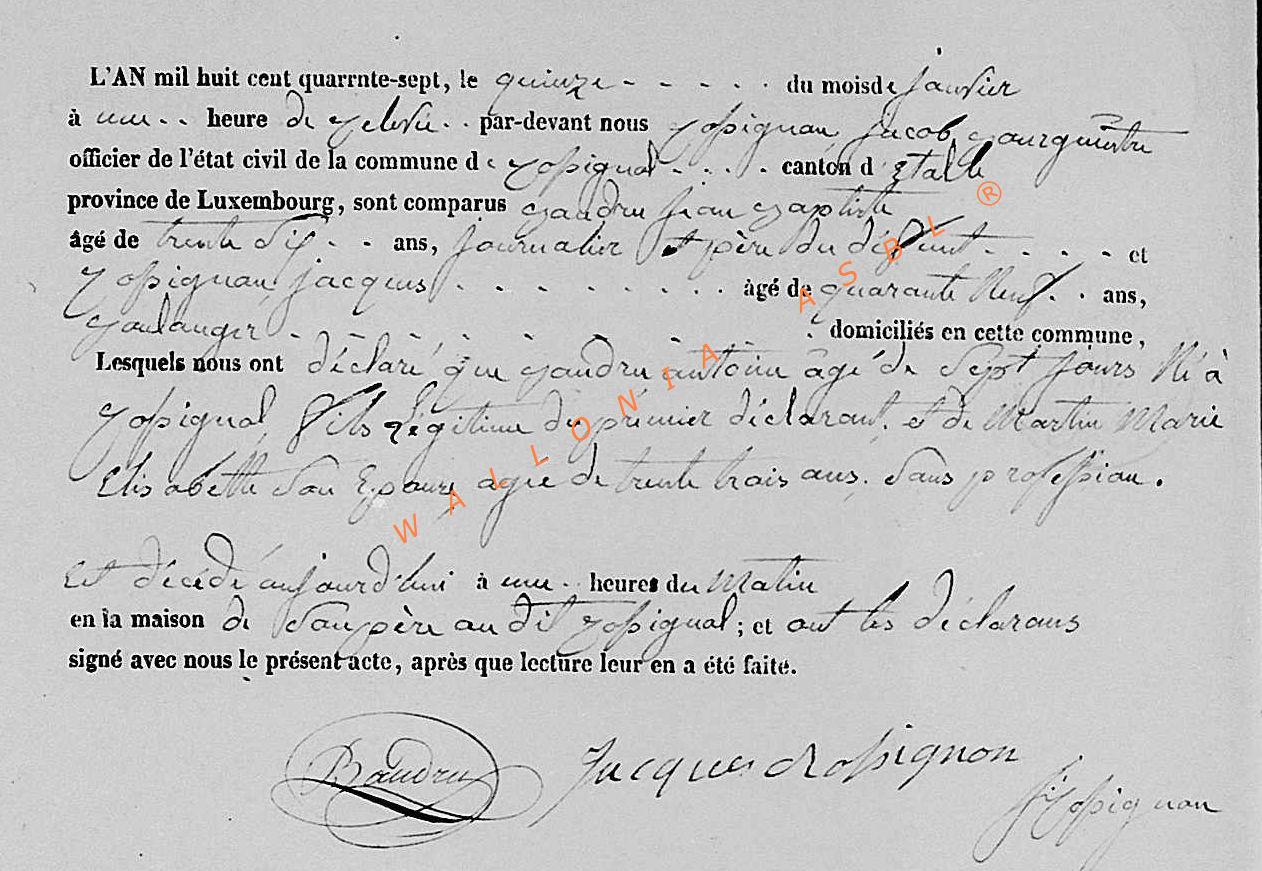 L'AN mil huit cent quarrnte-sept, le quinze - - - - - du moisde janvier
à une - - heure de relevée - - par-devant nous Rossignon Jacob Bourgmestre
officier de l'état civil de la commune de Rossignol - - - - canton d'Etalle
province de Luxembourg, sont comparus Baudru Jean Baptiste
âgé de trente six - - ans, Journalier et père du défunt - - - - et
Rossignon Jacques - - - - - - - - âgé de quarante Neuf - - ans,
Boulanger - - - - - - - - domiciliés en cette commune,
Lesquels nous ont déclaré que Baudru antoine âgé de Sept Jours Né à
Rossignol, Fils Légitime du premier déclarant, et de Martin Marie
Elisabette Son Epouse agée de trente trois ans, Sans profession.
Est décédé aujourd'hui à une - heures du Matin
en la maison de Son père au dit Rossignol; et ont les déclarans
signé avec nous le présent acte, après que lecture leur en a été faite.
Baudru Jacques Rossignon
J. Rossignon
WALLONIA ASBL ®